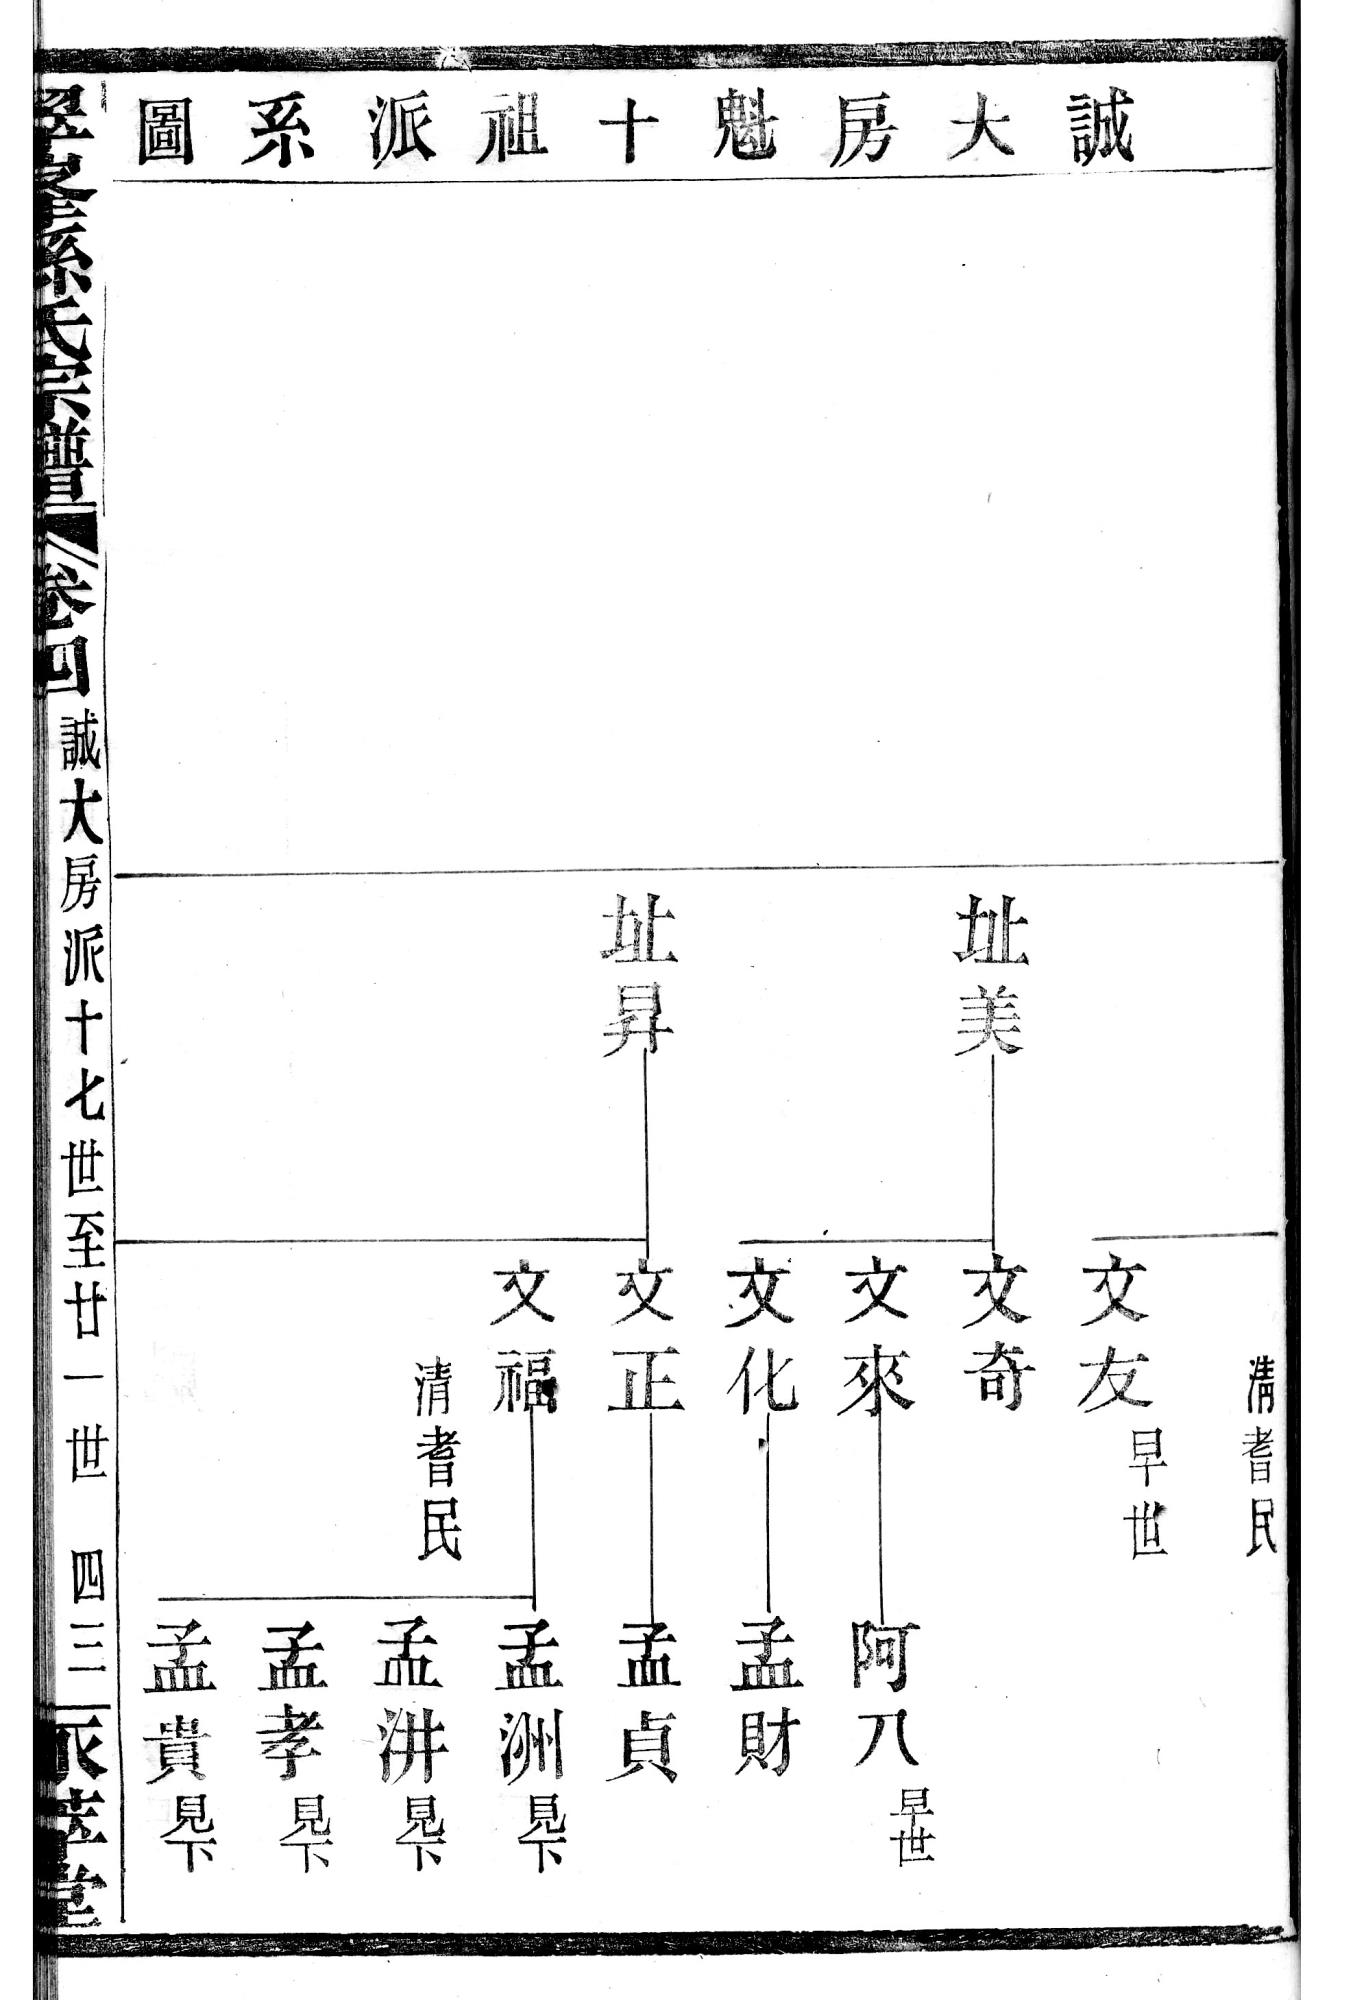 誠大房魁十祖派系圖
址美
址昇
清耆民
文友 早世
文奇
文來
文化
文正
文福
清耆民
阿八 早世
孟財
孟貞
孟洲 見下
孟汫 見下
孟孝 見下
孟貴 見下
孫氏宗譜 卷四 誠大房派十七世至廿一世 四三